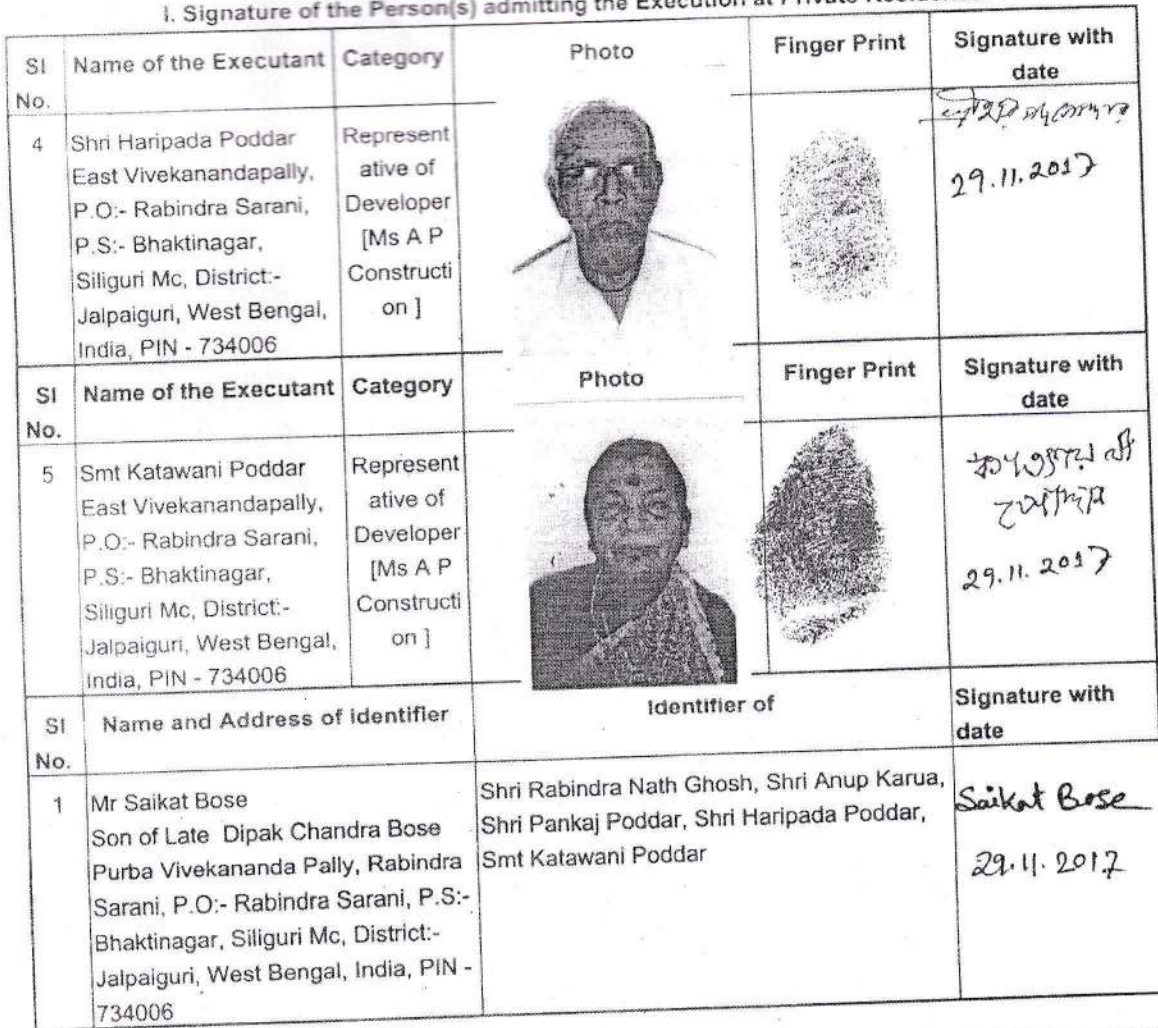 I. Signature of the Person(s) admitting the Execution at Private
Sl No. Name of the Executant Category Photo Finger Print Signature with date
4 Shri Haripada Poddar
East Vivekanandapally,
P.O:- Rabindra Sarani,
P.S:- Bhaktinagar,
Siliguri Mc, District:-
Jalpaiguri, West Bengal,
India, PIN - 734006
Represent
ative of
Developer
[Ms A P
Constructi
on ]
29.11.2017
Sl No. Name of the Executant Category Photo Finger Print Signature with date
5 Smt Katawani Poddar
East Vivekanandapally,
P.O:- Rabindra Sarani,
P.S:- Bhaktinagar,
Siliguri Mc, District:-
Jalpaiguri, West Bengal,
India, PIN - 734006
Represent
ative of
Developer
[Ms A P
Constructi
on ]
29.11.2017
Sl No. Name and Address of identifier Identifier of Signature with date
1 Mr Saikat Bose
Son of Late Dipak Chandra Bose
Purba Vivekananda Pally, Rabindra
Sarani, P.O:- Rabindra Sarani, P.S:-
Bhaktinagar, Siliguri Mc, District:-
Jalpaiguri, West Bengal, India, PIN -
734006
Shri Rabindra Nath Ghosh, Shri Anup Karua,
Shri Pankaj Poddar, Shri Haripada Poddar,
Smt Katawani Poddar
Saikat Bose
29.11.2017